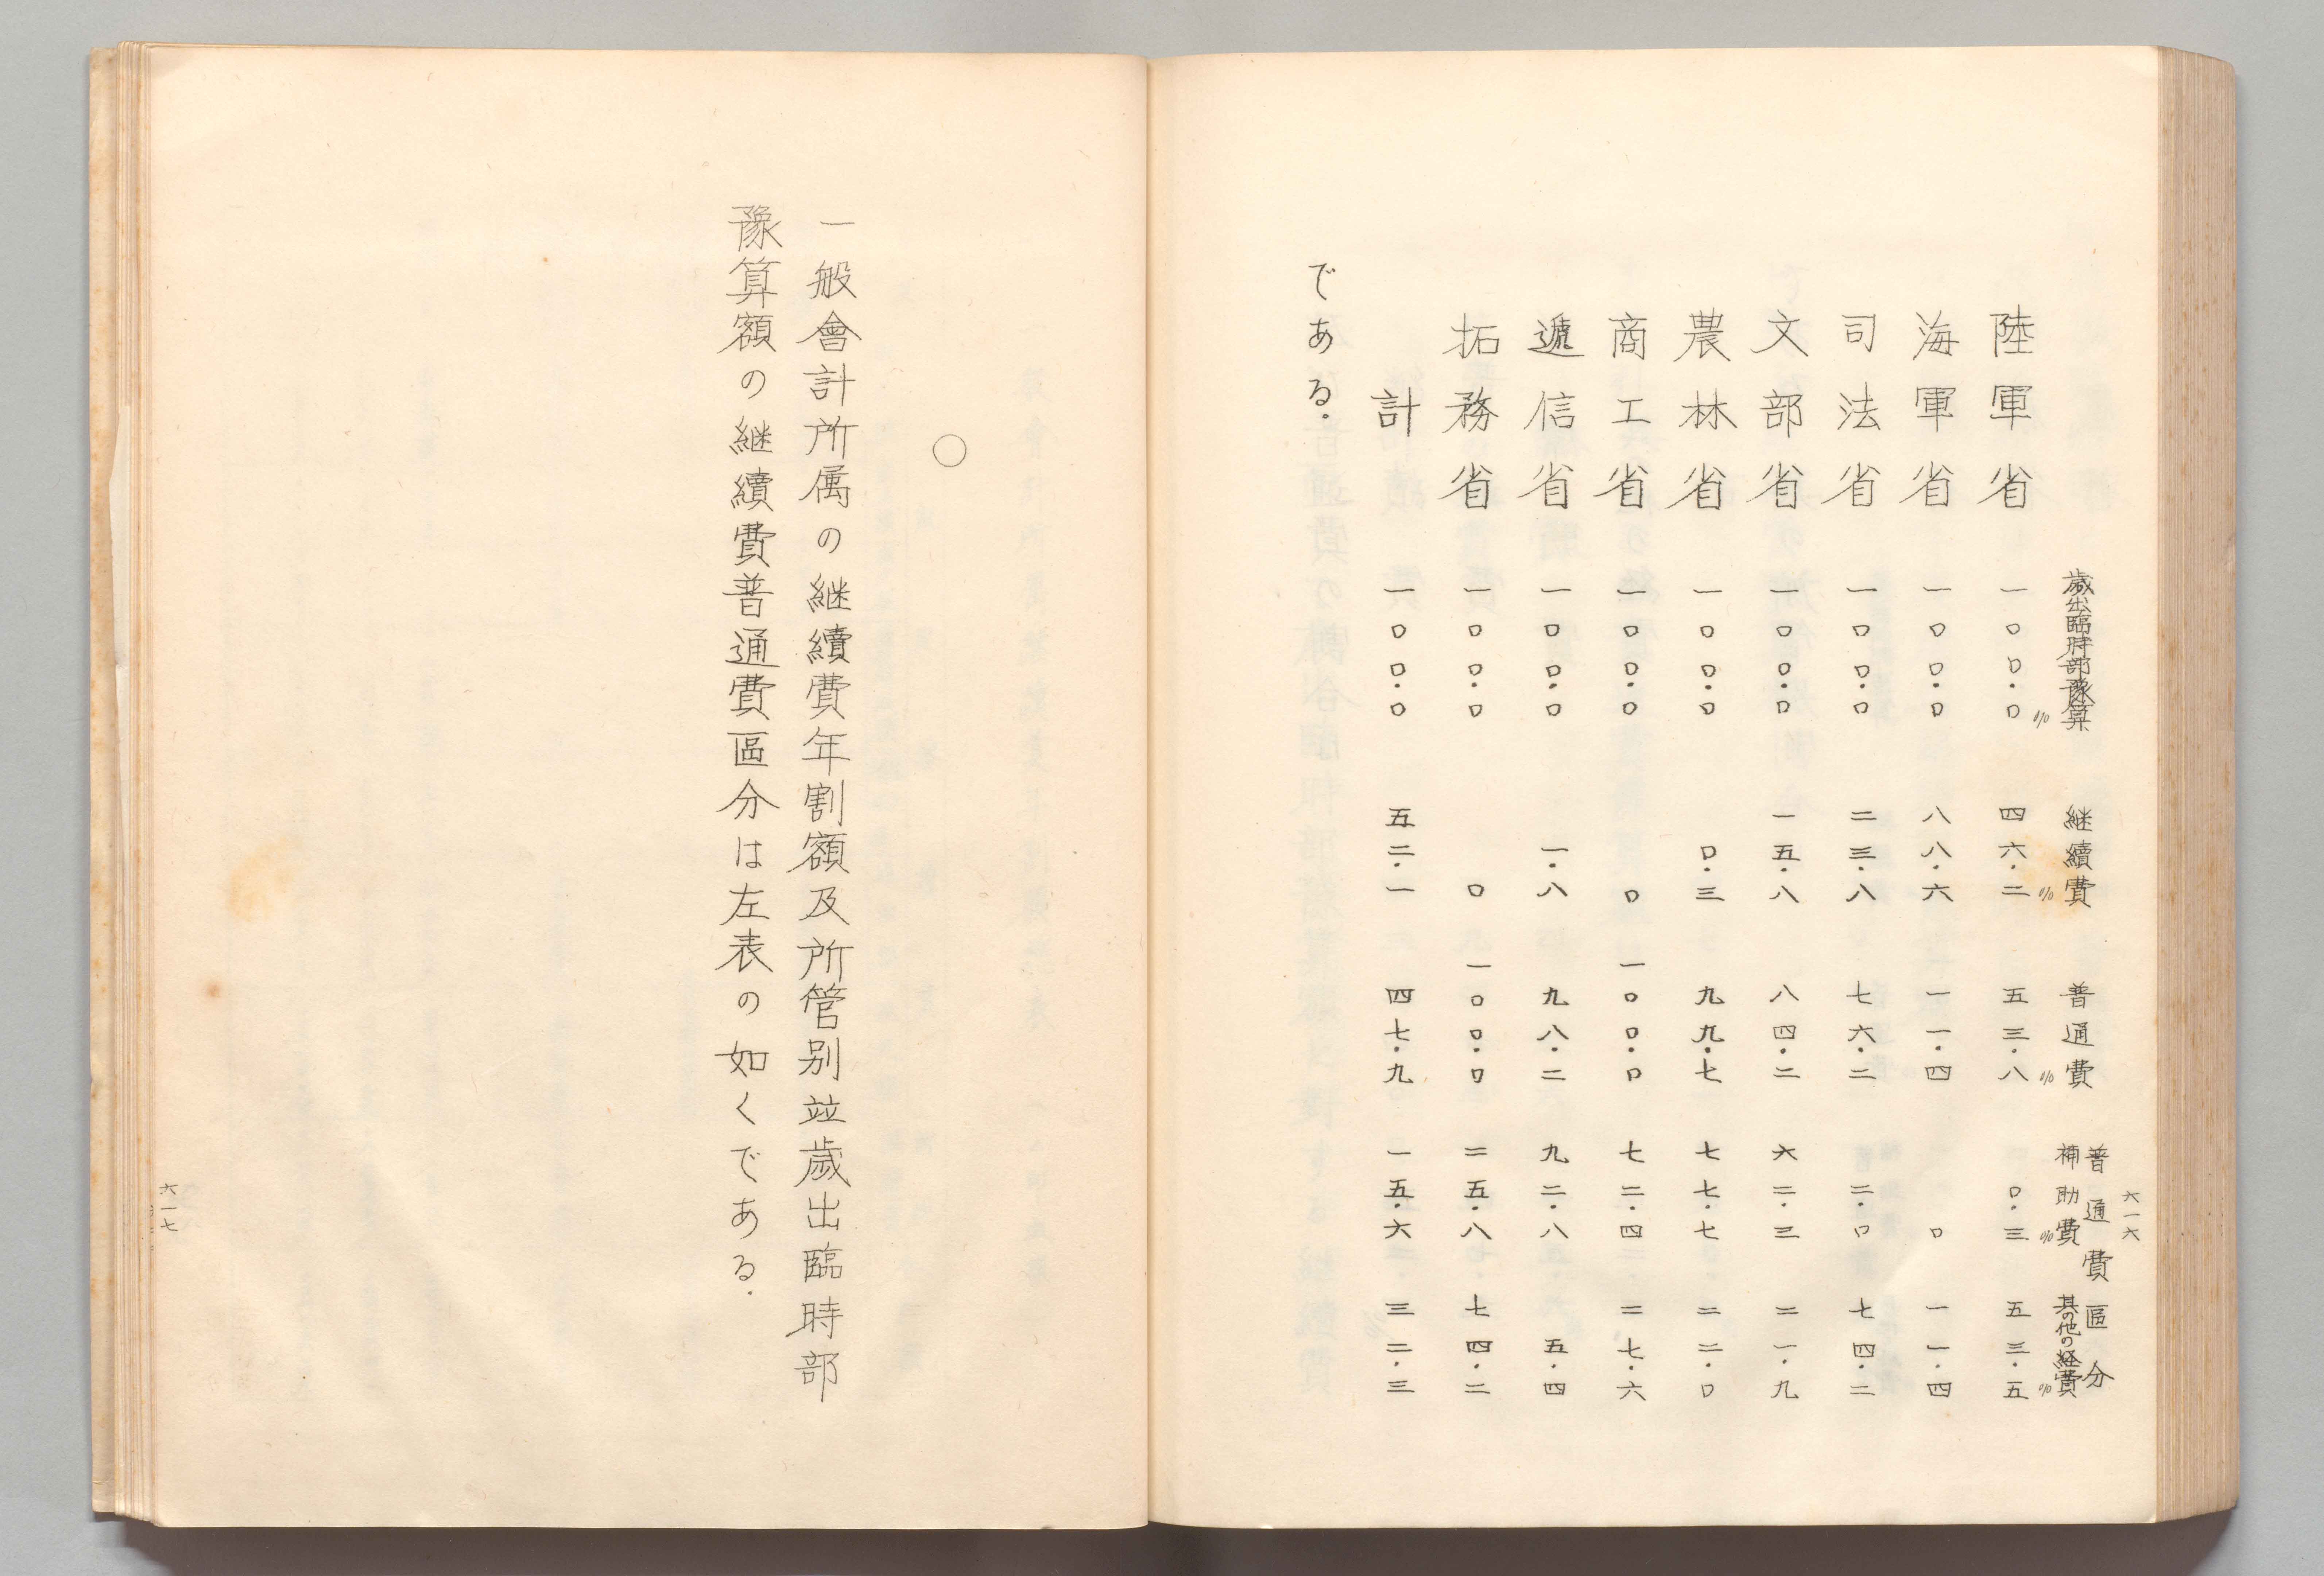 六一六
普通費區分
歳出臨時部豫算 % 継續費 % 普通費 % 補助費 % 其の他の経費 %
陸軍省 一〇〇.〇 四六.二 五三.八 〇.三 五三.五
海軍省 一〇〇.〇 八八.六 一一.四 〇 一一.四
司法省 一〇〇.〇 二三.八 七六.二 二.〇 七四.二
文部省 一〇〇.〇 一五.八 八四.二 六二.三 二一.九
農林省 一〇〇.〇 〇.三 九九.七 七七.七 二二.〇
商工省 一〇〇.〇 〇 一〇〇.〇 七二.四 二七.六
遞信省 一〇〇.〇 一.八 九八.二 九二.八 五.四
拓務省 一〇〇.〇 〇 一〇〇.〇 二五.八 七四.二
計 一〇〇.〇 五二.一 四七.九 一五.六 三二.三
である.
○
一般會計所属の継續費年割額及所管别竝歳出臨時部
豫算額の継續費普通費區分は左表の如くである.
六一七